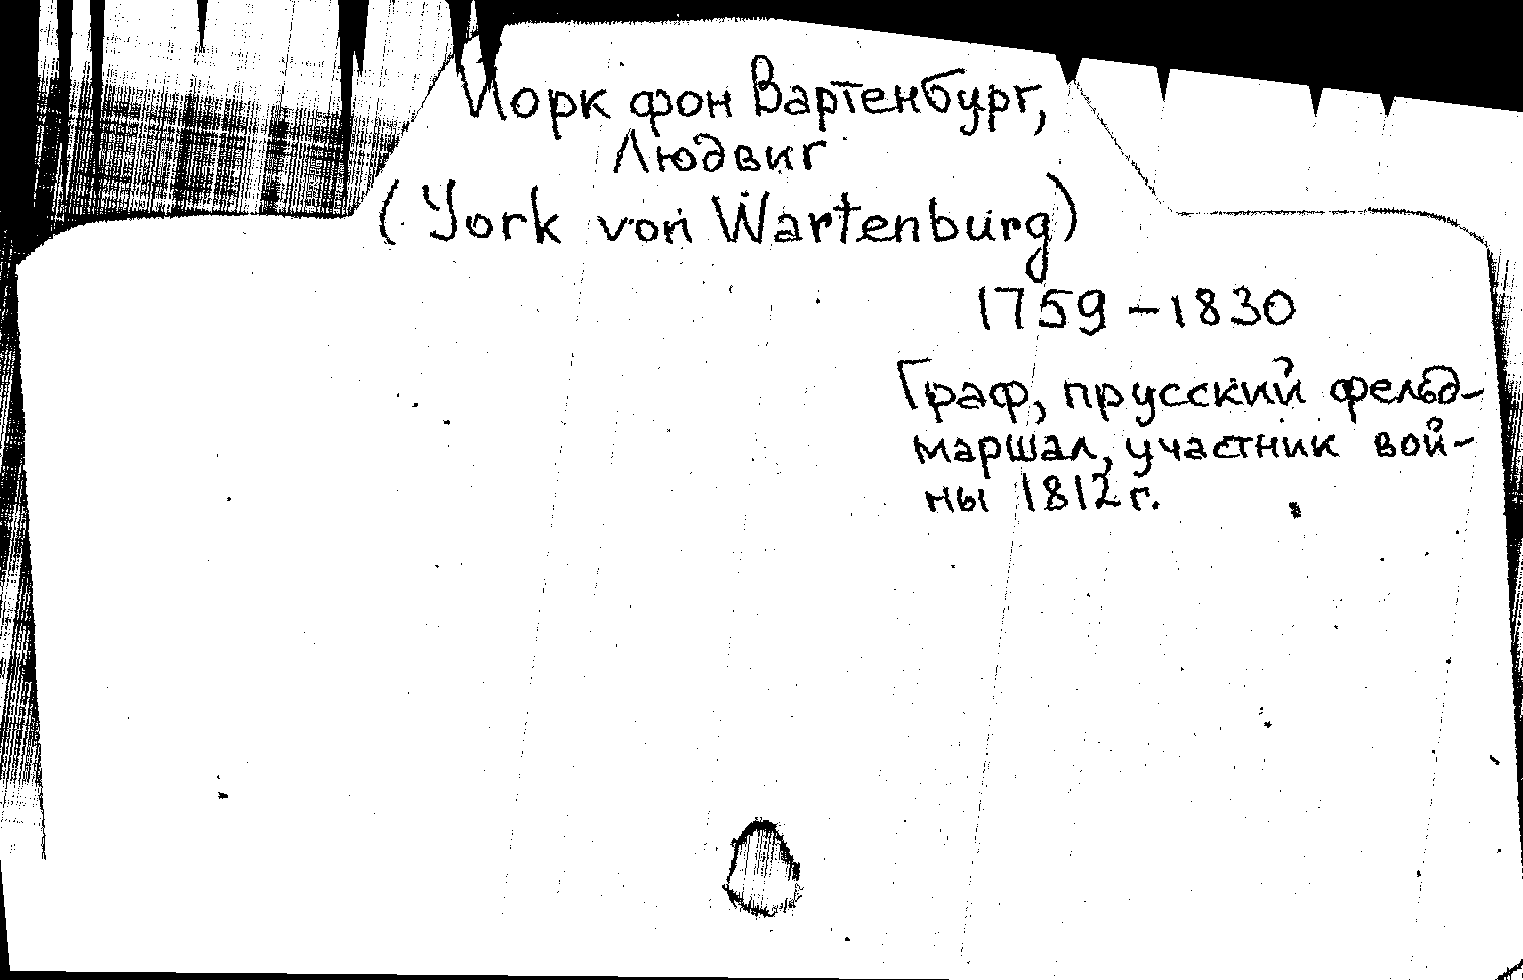 Йорк фон Вартенбург,
Людвиг
(York von Wartenburg)
1759 – 1830
Граф, прусский фельд-
маршал, участник вой-
ны 1812 г.